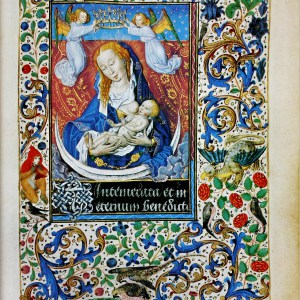 Intemerata et in
eternum benedicta